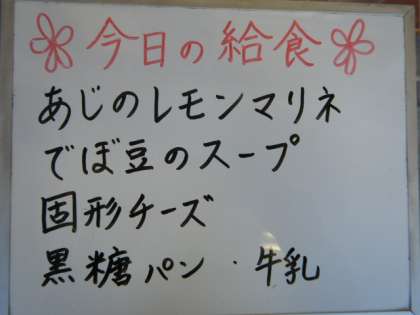 今日の給食
あじのレモンマリネ
でぼ豆のスープ
固形チーズ
黒糖パン・牛乳